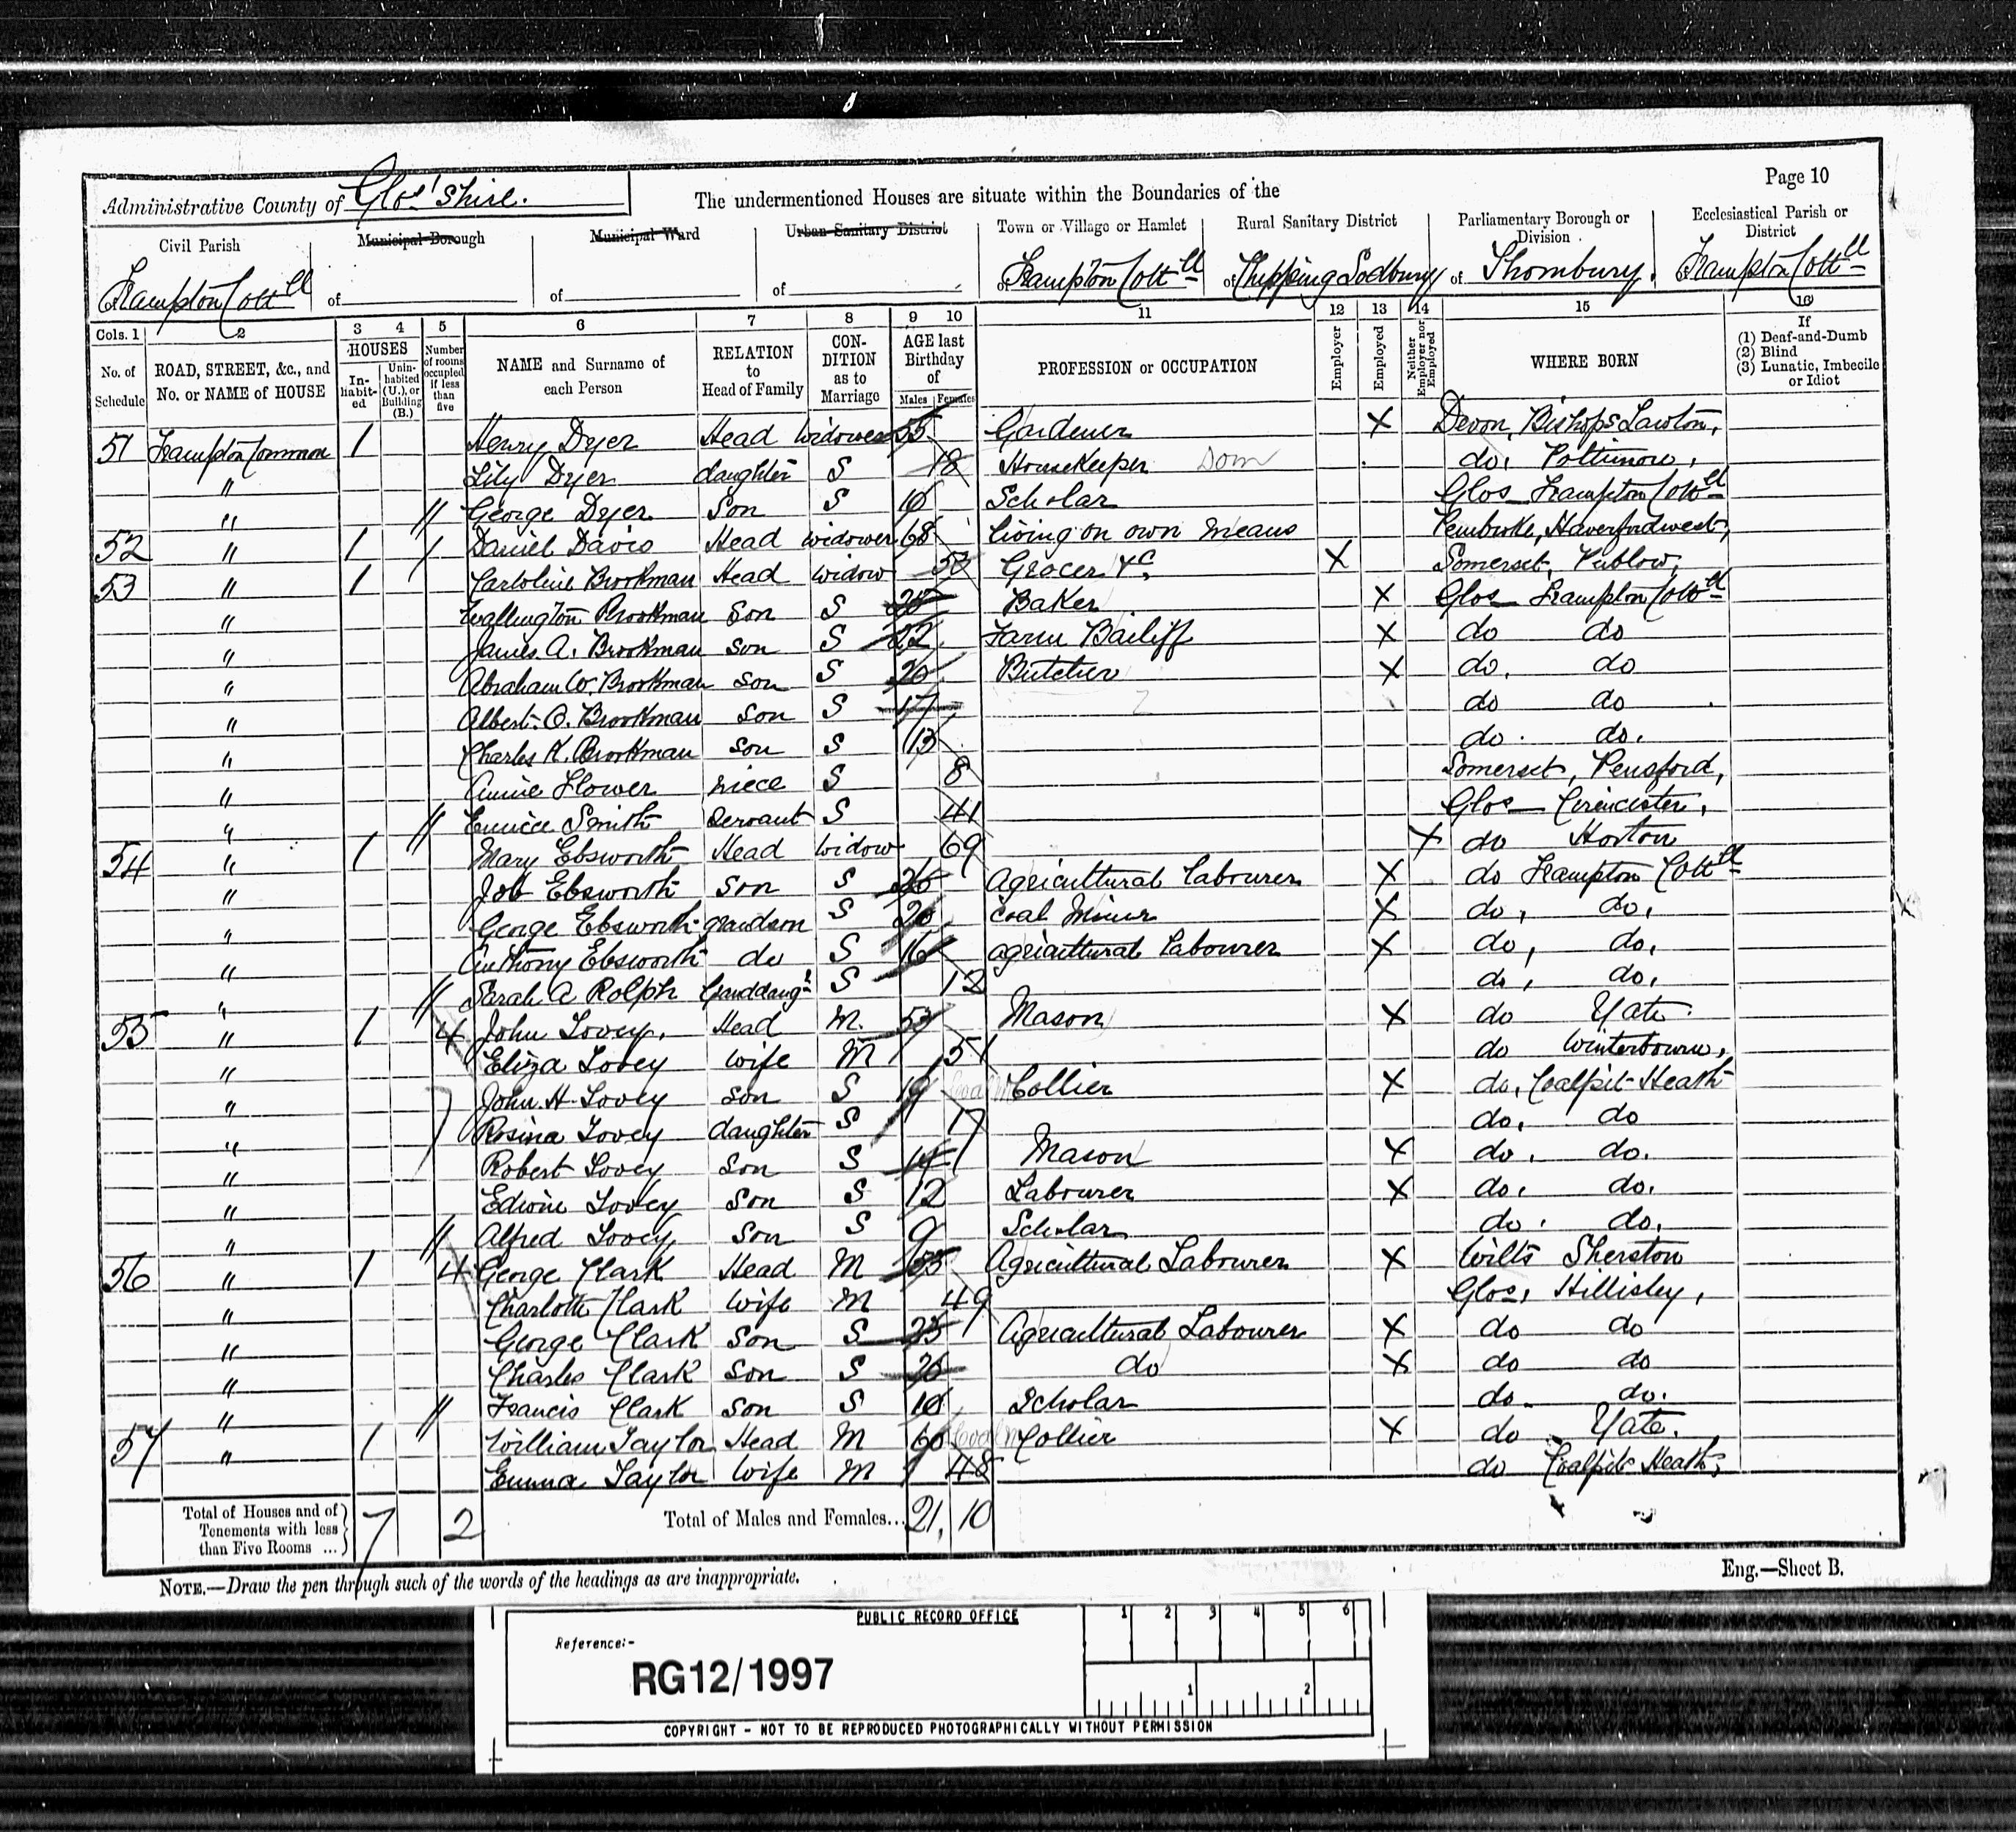 Page 10
Administrative County of Glos'shire.
The undermentioned Houses are situate within the Boundaries of the
Civil Parish
Municipal Borough
Municipal Ward
Urban Sanitary District
Town or Village or Hamlet
Rural Sanitary District
Parliamentary Borough or Division
Ecclesiastical Parish or District
Frampton Cottll
of
of
of
Frampton Cottll
of Chipping Sodbury
of Thornbury.
Frampton Cottll
Cols. 1 2 3 4 5 6 7 8 9 10 11 12 13 14 15 16
No. of Schedule
ROAD, STREET, &c., and No. or NAME of HOUSE
HOUSES
Inhabited
Uninhabited (U.), or Building (B.)
Number of rooms occupied if less than five
NAME and Surname of each Person
RELATION to Head of Family
CONDITION as to Marriage
AGE last Birthday of
Males Females
PROFESSION or OCCUPATION
Employer
Employed
Neither Employer nor Employed
WHERE BORN
If
(1) Deaf-and-Dumb
(2) Blind
(3) Lunatic, Imbecile or Idiot
51 Frampton Common 1 Henry Dyer Head Widower 55 Gardener X Devon, Bishops Lawton,
" Lily Dyer daughter S 18 Housekeeper Dom do, Poltimore,
" // George Dyer Son S 10 Scholar Glos Frampton Cottll
52 " 1 / Daniel Davis Head widower 68 living on own means Pembroke, Haverfordwest,
53 " 1 Caroline Brookman Head widow 53 Grocer &c. X Somerset, Publow,
" Wallington Brookman Son S Baker X Glos Frampton Cottll
" James. A. Brookman son S 22 Farm Bailiff X do do
" Abraham W. Brookman son S 20 Butcher X do, do
" Albert. O. Brookman son S 17 do do
" Charles K. Brookman son S 13 do. do.
" Annie Flower niece S 8 Somerset, Pensford,
" // Eunice Smith Servant S 41 Glos Cirencester,
54 " 1 Mary Ebsworth Head widow 69 X do Horton
" Job Ebsworth son S 26 Agricultural Labourer X do Frampton Cottll
" George Ebsworth grandson S 20 coal Miner X do, do,
" Anthony Ebsworth do S 16 agricultural Labourer X do, do,
" // Sarah A Rolph Granddaugr S 12 do, do,
55 " 1 4 John Lovey, Head M. 53 Mason X do Yate
" Eliza Lovey wife M 51 do Winterbourne,
" John. H Lovey son S 19 Collier X do, Coalpit Heath
" Rosina Lovey daughter S 17 do, do
" Robert Lovey Son S 14 Mason X do, do.
" Edwin Lovey Son S 12 Labourer X do, do.
" // Alfred Lovey Son S 9 Scholar do. do.
56 " 1 4 George Clark Head M 55 Agricultural Labourer X Wilts Sherston
" Charlotte Clark wife M 49 Glos, Hillisley,
" George Clark Son S 23 Agricultural Labourer X do do
" Charles Clark Son S do X do do
" // Francis Clark Son S 10 Scholar do. do.
57 " 1 William Taylor Head M 60 Collier X do Yate.
" Emma Taylor Wife M 48 do Coalpit Heath,
Total of Houses and of Tenements with less than Five Rooms ... 7 2
Total of Males and Females... 21, 10
NOTE.—Draw the pen through such of the words of the headings as are inappropriate.
Eng.—Sheet B.
PUBLIC RECORD OFFICE
1 2 3 4 5 6
Reference:-
RG12/1997
1 2
COPYRIGHT - NOT TO BE REPRODUCED PHOTOGRAPHICALLY WITHOUT PERMISSION